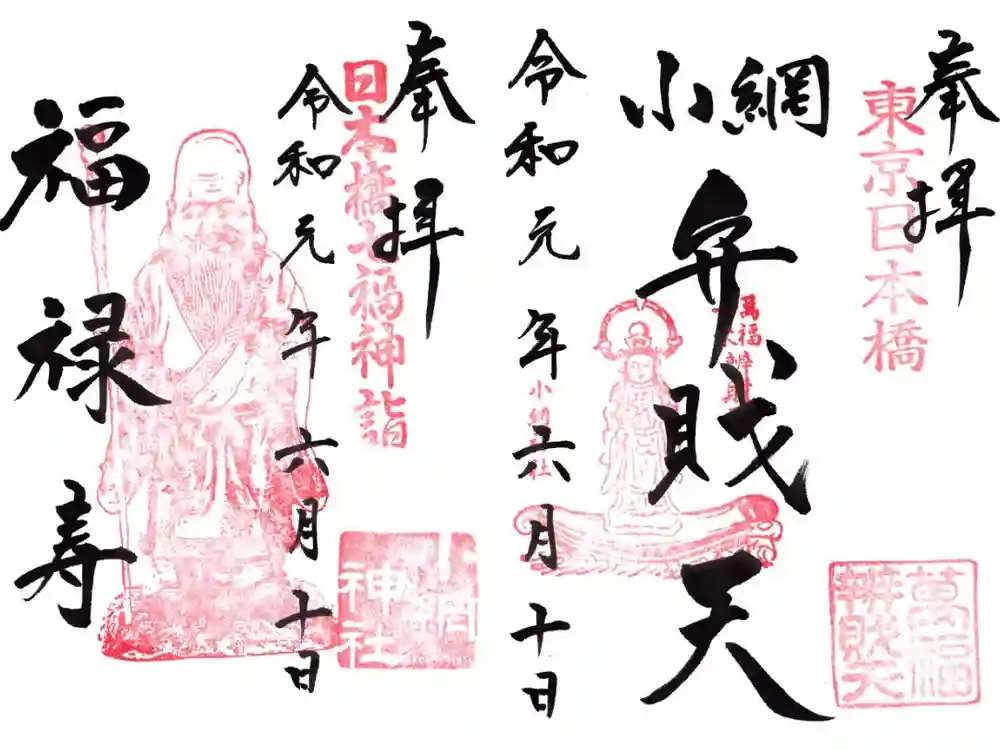 奉拝
東京日本橋
萬福
辨財天
小網
弁財天
令和元年六月十日
奉拝
日本橋七福神詣
小網
神社
令和元年六月十日
福禄寿